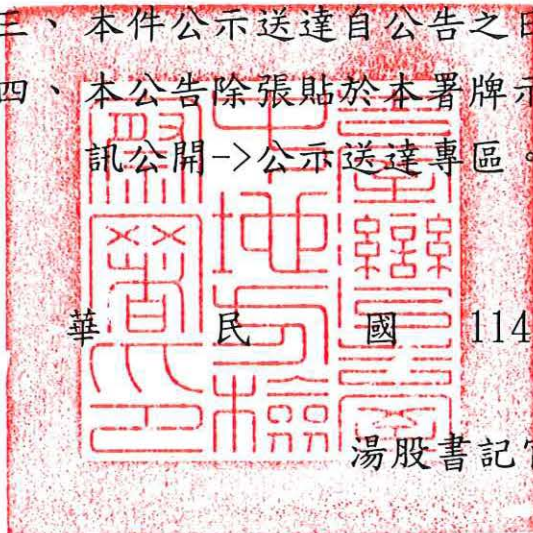 三、本件公示送達自公告之日
四、本公告除張貼於本署牌示
訊公開->公示送達專區。
華 民 國 114
湯股書記官
臺灣臺中地方檢察署印